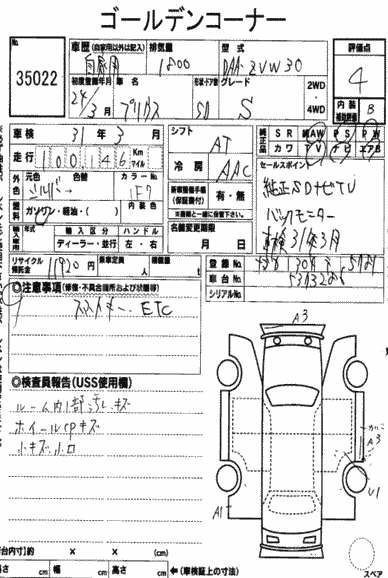 ゴールデンコーナー
No. 35022
車歴 (自家用以外は記入) 自家用
排気量 1800
型式 DAA-ZVW30
評価点 4
初度登録年月 24/3月
車名 プリウス
形状・ドア数 5D
グレード S
2WD・4WD
内装補助評価 B
車検 31年3月
シフト AT
純正品 SR 純AW PS PW
カワ TV ナビ エアB
走行 100146 Km マイル
冷房 AAC
セールスポイント
純正SDナビTV
バックモニター
車検31年3月
外色 元色 シルバー 色替
カラーNo. 1F7
新車整備手帳(保証書付) 有・無
※書類と一緒に保管下さい。
燃料 ガソリン・軽油・( )
内装色
輸入車用 年式 輸入区分 ハンドル
ディーラー・並行 左・右
名義変更期限 月 日
リサイクル預託金 11920円
乗車定員 人
積載量 t
登録No.
車台No.
シリアルNo.
◎注意事項 (修復・不具合箇所および状態等)
スマートキー、ETC
◎検査員報告(USS使用欄)
ルーム内1部汚レキズ
ホイールcpキズ
小キズ小凹
A3
A3
U1
A1
(荷台内寸)約 × × (cm)
長さ cm 幅 cm 高さ cm
←(車検証上の寸法)
スペア